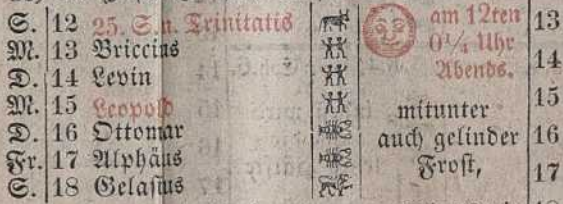 S. 12 25. S. n. Trinitatis am 12ten 13
M. 13 Briccius 0¼ Uhr
D. 14 Levin Abends. 14
M. 15 Leopold mitunter 15
D. 16 Ottomar auch gelinder 16
Fr. 17 Alphäus Frost, 17
S. 18 Gelasius